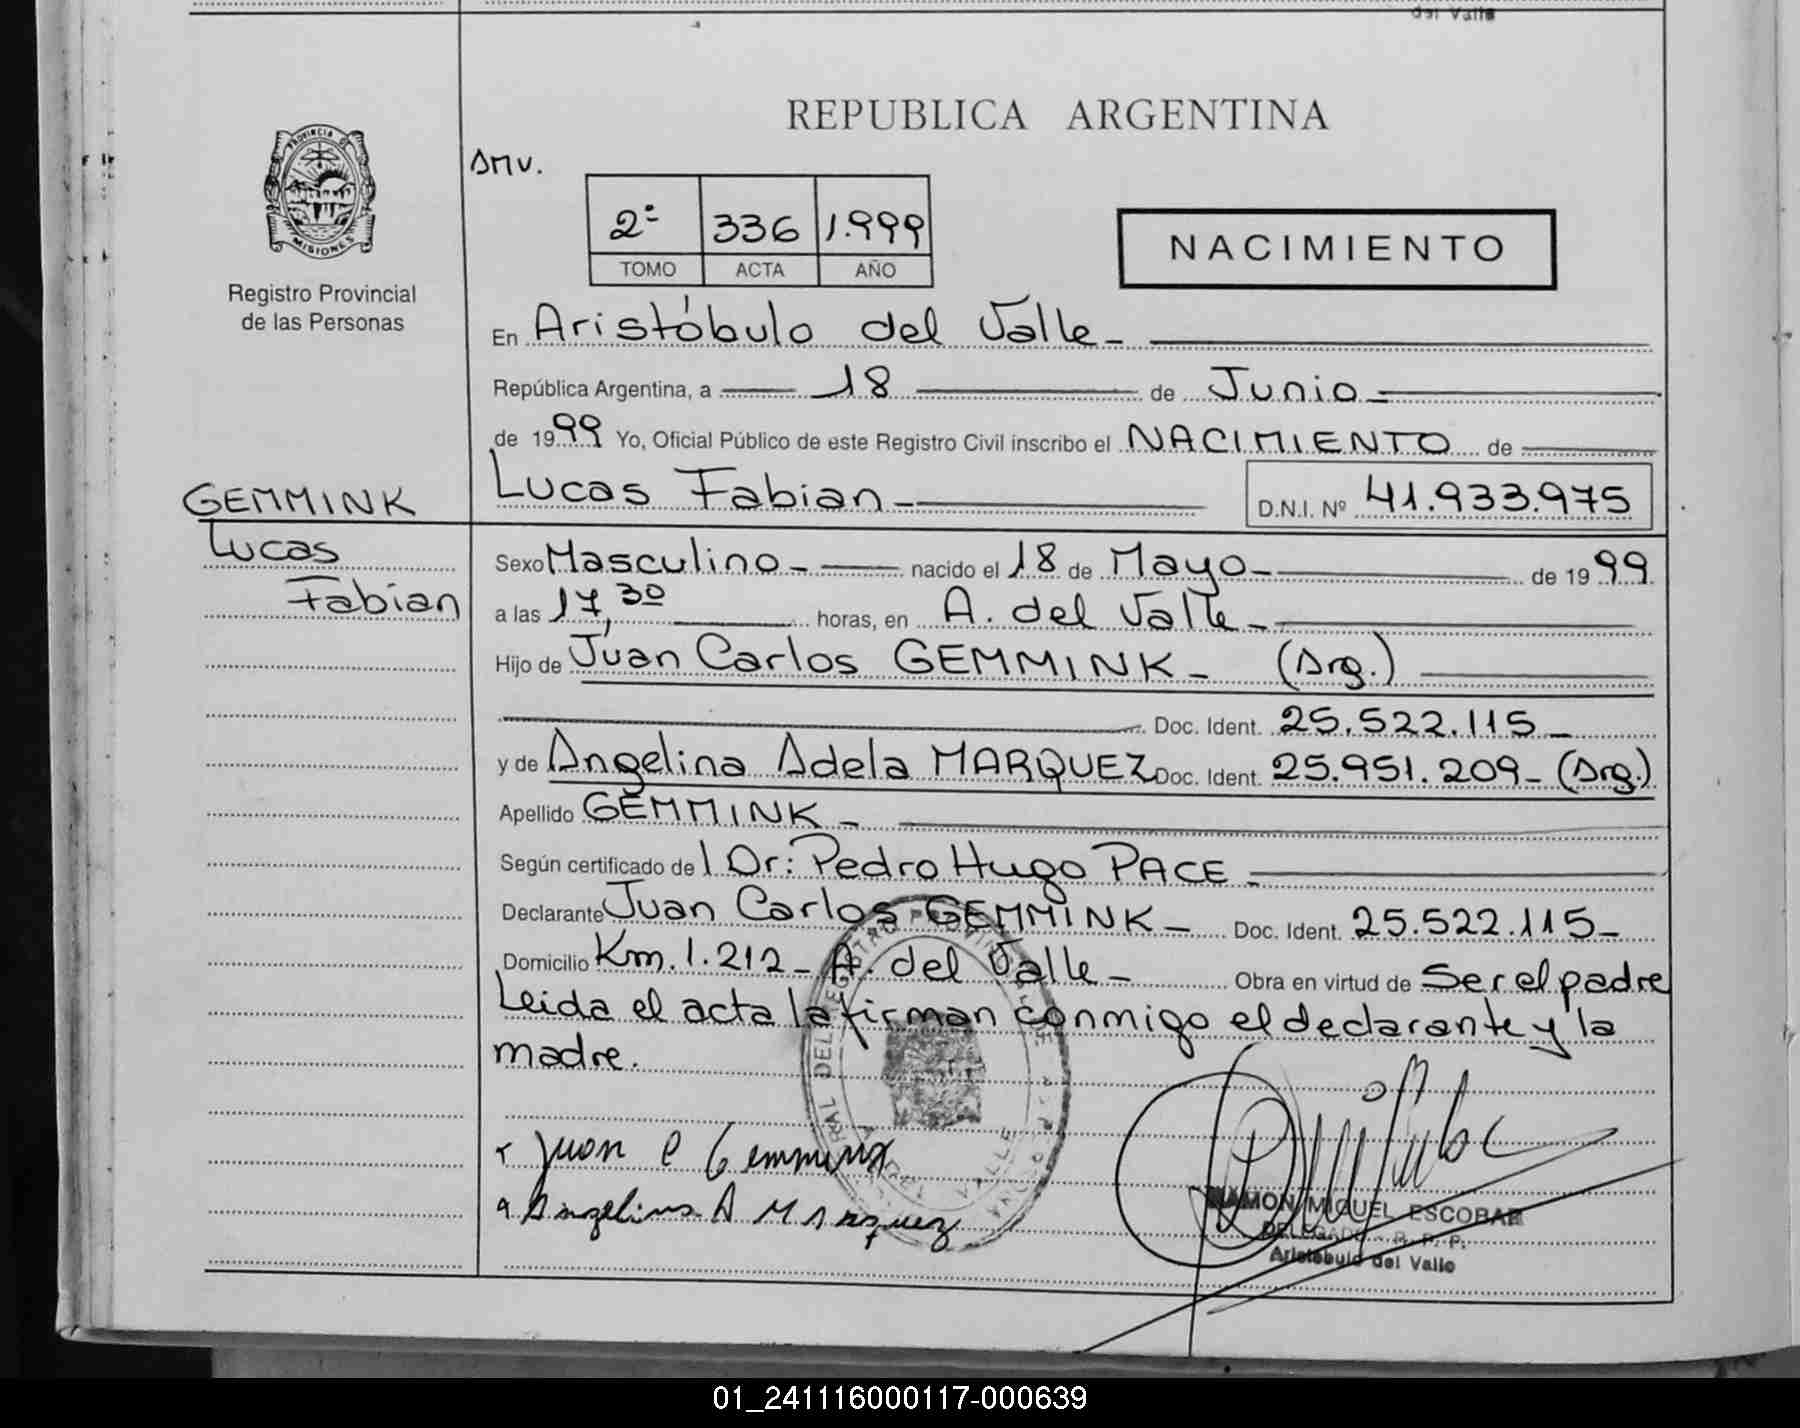 del Valle
REPUBLICA ARGENTINA
PROVINCIA DE
MISIONES
Registro Provincial
de las Personas
AMV.
2º 336 1.999
TOMO ACTA AÑO
NACIMIENTO
En Aristóbulo del Valle-
República Argentina, a 18 de Junio-
de 1999 Yo, Oficial Público de este Registro Civil inscribo el NACIMIENTO de
Lucas Fabian- D.N.I. Nº 41.933.975
GEMMINK
Lucas
Fabian
Sexo Masculino- nacido el 18 de Mayo- de 1999
a las 17,30 horas, en A. del Valle-
Hijo de Juan Carlos GEMMINK- (Arg.)
Doc. Ident. 25.522.115-
y de Angelina Adela MARQUEZ Doc. Ident. 25.951.209- (Arg.)
Apellido GEMMINK-
Según certificado de l Dr: Pedro Hugo PACE-
Declarante Juan Carlos GEMMINK- Doc. Ident. 25.522.115-
Domicilio Km. 1.212- A. del Valle- Obra en virtud de Ser el padre
Leida el acta la firman conmigo el declarante y la
madre.
Juan C Gemmink
Angelina A Marquez
RAMON MIGUEL ESCOBAR
DELEGADO - R. P. P.
Aristóbulo del Valle
01_241116000117-000639